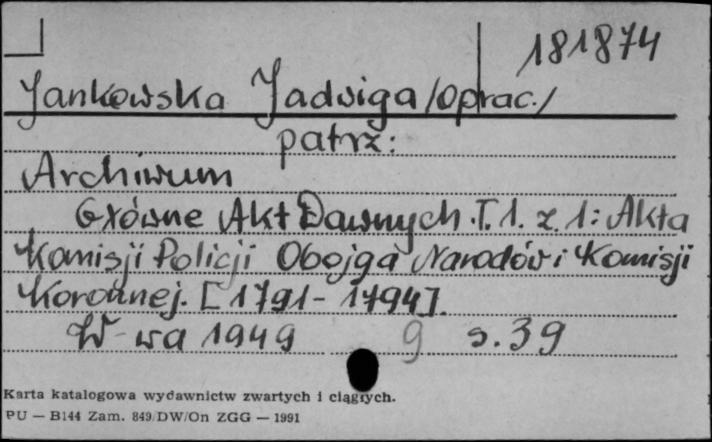 181874
Jankowska Jadwiga /oprac./
patrz:
Archiwum
Główne Akt Dawnych. T. 1. z. 1: Akta
Komisji Policji Obojga Narodów i Komisji
Koronnej. [1791-1794].
W-wa 1949 g s. 39
Karta katalogowa wydawnictw zwartych i ciągłych.
PU — B144 Zam. 849/DW/On ZGG — 1991